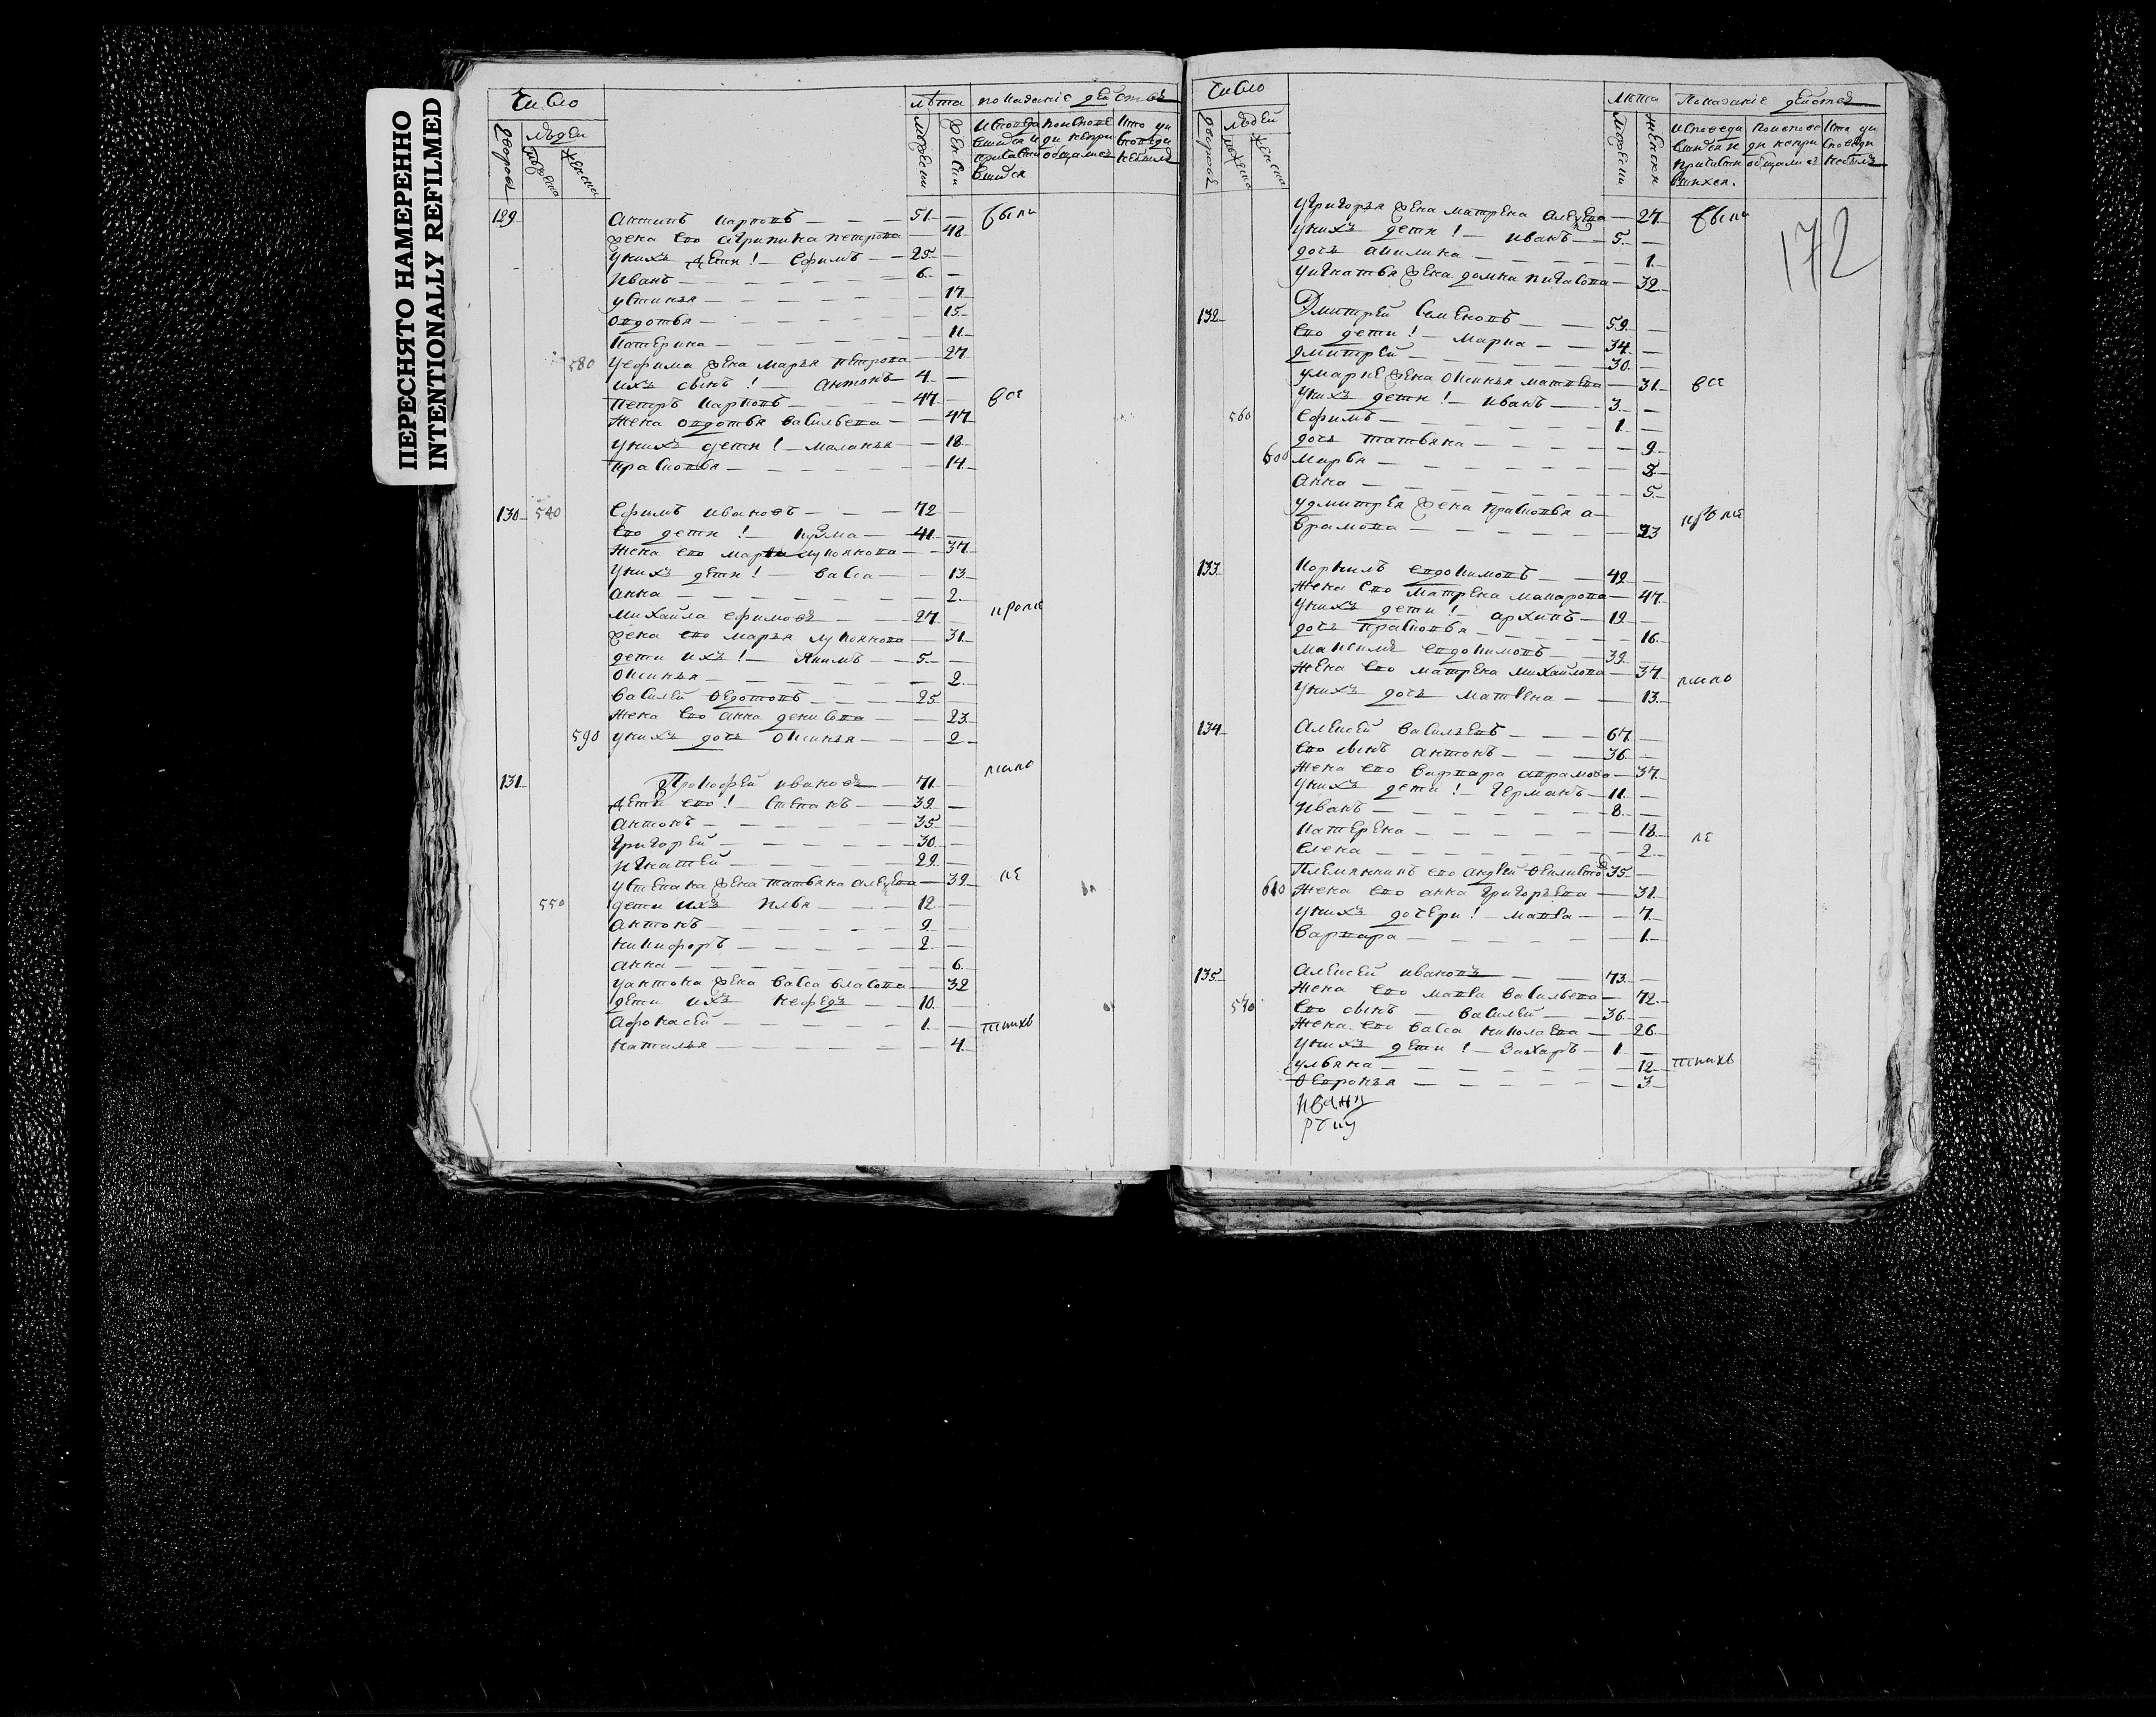 ПЕРЕСНЯТО НАМЕРЕННО
INTENTIONALLY REFILMED
Число
лѣта показаніе действъ
дворовъ
людей
мужеска
женска
мужески
женски
исповеда
вшихся и
причасти
вшихся
по исповѣ
ди непри
общались
кто у и
споведи
небылъ
129 Антипъ Карповъ 51 были
жена ево Агрипина петрова 48
у нихъ дети! Ефимъ 25
Иванъ 6
устинья 17
овдотья 15
катерина 11
580 у ефима жена марья петрова 27
ихъ сынъ! антонъ 4
петръ карповъ 47 все
жена овдотья васильева 47
у нихъ дети! маланья 18
прасковья 14
130 540 Ефимъ ивановъ 72
ево дети! кузма 41
жена ево лукоянова 37
у нихъ дети! васса 13
анна 2
михайла ефимовъ 27 кроме
жена ево марья лукоянова 31
дети ихъ! Якимъ 5
оксинья 2
василей ѳедотовъ 25
жена ево анна денисова 23
590 у нихъ дочь оксинья 2
131 Прокофей ивановъ 71
дети ево! степанъ 39
антонъ 35
григорей 30
игнатей 29
у степана жена татьяна 39 не
550 дети ихъ илья 12
антонъ 9
никифоръ 2
анна 6
у антона жена васса власова 32
дети ихъ нефедъ 10
Афонасей 1
наталья 4
Число
лета Показаніе действъ
дворовъ
людей
мужеска
женска
мужески
женски
исповеда
вшихся и
причасти
вшихся.
по испове
ди непри
общались
кто у и
споведи
небылъ
172
у григорья жена матрена 27 были
у нихъ дети! иванъ 5
дочь акилина 1
у игнатья жена домна 32
132 Дмитрей Семеновъ 59
ево дети! марка 34
дмитрей 30
у марке жена оксинья матвева 31 все
у нихъ дети! иванъ 3
560 Ефимъ 1
дочь татьяна 9
600 марья 8
анна 5
у дмитрея жена прасковья а
врамова 23 кроме
133 корнилъ евдокимовъ 49
жена ево матрена макарова 47
у нихъ дети! архипъ 19
дочь прасковья 16
максимъ евдокимовъ 39
жена ево матрена михайлова 37
у нихъ дочь матрена 13
134 алексей васильевъ 67
ево сынъ антонъ 36
жена ево варвара аврамова 37
у нихъ дети! германъ 11
иванъ 8
катерена 18 не
елена 2
племянникъ ево андрей 35
610 жена ево анна григорьева 31
у нихъ дочери! мавра 7
варвара 1
135 алексей ивановъ 73
жена ево мавра васильева 72
570 ево сынъ василей 36
жена ево васса николаева 26
у нихъ дети! Захаръ 1
ульяна 12
ѳевронья 3